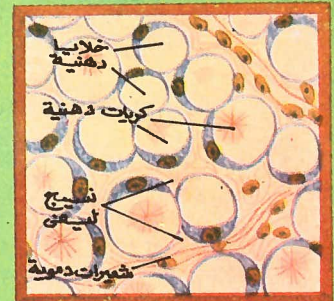 خلايا
دهنية
كريات دهنية
نسيج
ليفى
شعيرات دموية